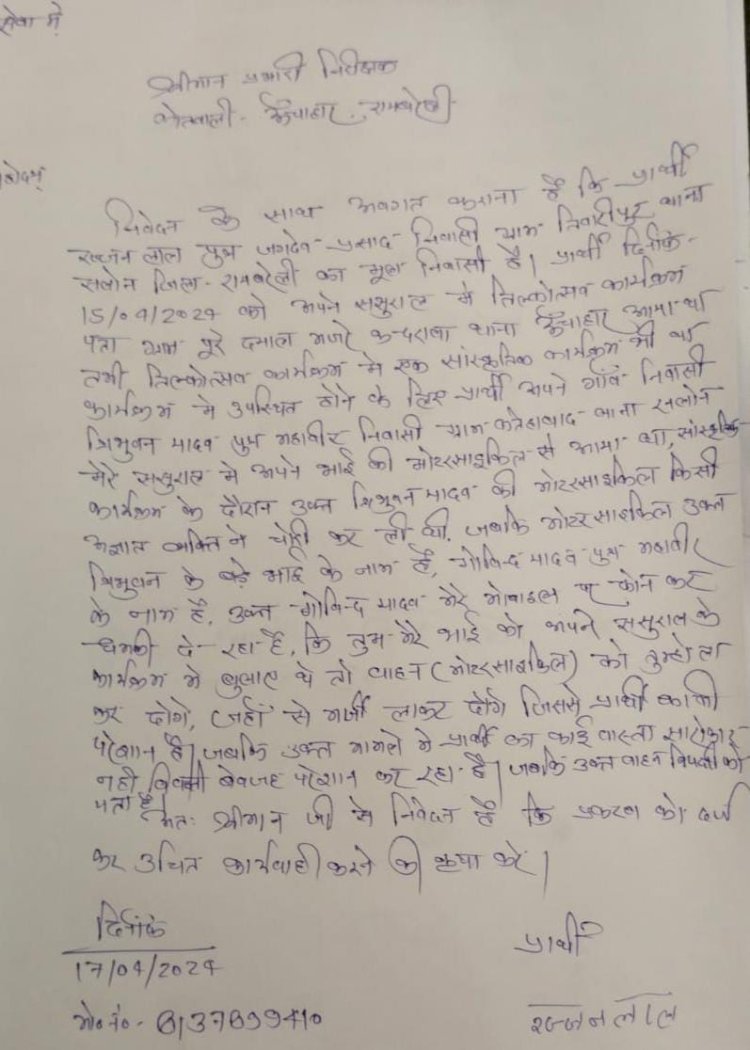 सेवा में
श्रीमान प्रभारी निरीक्षक
कोतवाली- ऊँचाहार, रायबरेली
महोदय,
निवेदन के साथ अवगत कराना है कि प्रार्थी
रज्जन लाल पुत्र जगदेव प्रसाद निवासी ग्राम तिवारीपुर थाना
सलोन जिला- रायबरेली का मूल निवासी है। प्रार्थी दिनांक-
15/04/2024 को अपने ससुराल मे तिलकोत्सव कार्यक्रम
पता ग्राम पूरे दयाल मजरे कन्दरावा थाना ऊँचाहार आया था
तभी तिलकोत्सव कार्यक्रम मे एक सांस्कृतिक कार्यक्रम भी था
कार्यक्रम मे उपस्थित होने के लिए प्रार्थी अपने गाँव निवासी
त्रिभुवन यादव पुत्र महावीर निवासी ग्राम थाना सलोन
मेरे ससुराल मे अपने भाई की मोटरसाइकिल से आया था, सांस्कृतिक
कार्यक्रम के दौरान उक्त त्रिभुवन यादव की मोटरसाइकिल किसी
अज्ञात व्यक्ति ने चोरी कर ली थी, जबकि मोटरसाइकिल उक्त
त्रिभुवन के बड़े भाई के नाम है, गोविन्द यादव पुत्र महावीर
के नाम है, उक्त गोविन्द यादव मेरे मोबाइल पर फोन कर
धमकी दे रहा है, कि तुम मेरे भाई को अपने ससुराल के
कार्यक्रम मे बुलाए थे तो वाहन (मोटरसाइकिल) को तुम्ही ला
कर दोगे, जहाँ से मर्जी लाकर दोगे जिससे प्रार्थी काफी
परेशान है। जबकि उक्त मामले मे प्रार्थी का कोई वास्ता सरोकार
नही विपक्षी बेवजह परेशान कर रहा है। जबकि उक्त वाहन विपक्षी को
पता है।
अतः श्रीमान जी से निवेदन है कि प्रकरण को दर्ज
कर उचित कार्यवाही करने की कृपा करे।
दिनांक
17/04/2024
प्रार्थी
मो० नं०-
रज्जन लाल